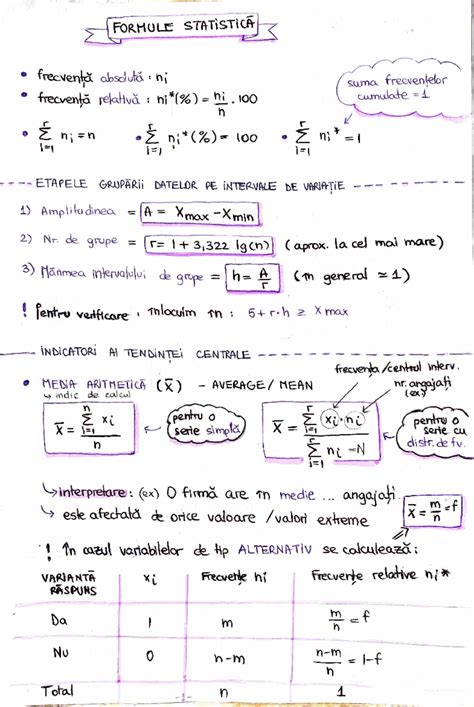 FORMULE STATISTICĂ
• frecvență absolută : ni
• frecvență relativă : ni*(%) = ni/n · 100
suma frecvențelor cumulate = 1
• Σ(i=1→r) ni = n • Σ(i=1→r) ni*(%) = 100 • Σ(i=1→r) ni* = 1
ETAPELE GRUPĂRII DATELOR PE INTERVALE DE VARIAȚIE
1) Amplitudinea = A = Xmax - Xmin
2) Nr. de grupe = r = 1 + 3,322 lg(n) (aprox. la cel mai mare)
3) Mărimea intervalului de grupe = h = A/r (în general ≃ 1)
! Pentru verificare , înlocuim în : 5 + r·h ≥ Xmax
INDICATORI AI TENDINȚEI CENTRALE
frecvența/centrul interv.
nr. angajați (ex.)
• MEDIA ARITMETICĂ (x̄) - AVERAGE / MEAN
↳ indic de calcul
x̄ = Σ(i=1→n) xi / n
pentru o serie simplă
x̄ = Σ(i=1→r) xi·ni / Σ(i=1→r) ni -N
pentru o serie cu distr. de fv.
↳ interpretare : (ex) O firmă are în medie ... angajați.
↳ este afectată de orice valoare / valori extreme
x̄ = m/n = f
! În cazul variabilelor de tip ALTERNATIV se calculează :
VARIANTĂ RĂSPUNS xi Frecvențe ni Frecvențe relative ni*
Da 1 m m/n = f
Nu 0 n-m n-m/n = 1-f
Total n 1